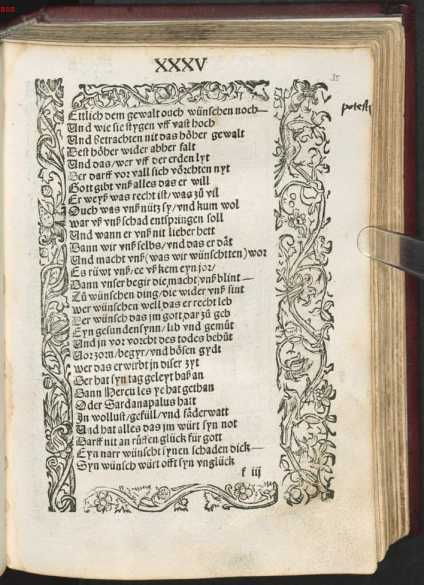 XXXV
35
potest
Ettlich dem gewalt ouch wünschen noch
Vnd wie sie stygen vff vast hoch
Vnd betrachten nit das höher gewalt
Dest höher wider abher falt
Vnd das/ wer vff der erden lyt
Der darff vor vall sich vörchten nyt
Gott gibt vnß alles das er will
Er weyß was recht ist/ was zů vil
Ouch was vnß nütz sy/ vnd kum wol
war vß vnß schad entspringen soll
Vnd wann er vnß nit lieber hett
Dann wir vnß selbs/ vnd das er dät
Vnd macht vnß (was wir wünschtten) wor
Es rüwt vnß/ ee vß kem eyn jor/
Dann vnser begir die macht vnß blint
Zů wünschen ding/ die wider vnß sint
wer wünschen well das er recht leb
Der wünsch das jm gott dar zů geb
Eyn gesunden synn/ lib vnd gemüt
Vnd jn vor vorcht des todes behüt
Vor zorn/ begyr/ vnd bösen gydt
wer das erwirbt jn diser zyt
Der hat syn tag geleyt baß an
Dann Hercules ye hat gethan
Oder Sardanapalus hait
Jn wollust/ gefüll/ vnd fäderwatt
Vnd hat alles das jm würt syn not
Darff nit an rüffen glück für gott
Eyn narr wünscht synen schaden dick
Syn wünsch würt offt syn vnglück
f iij